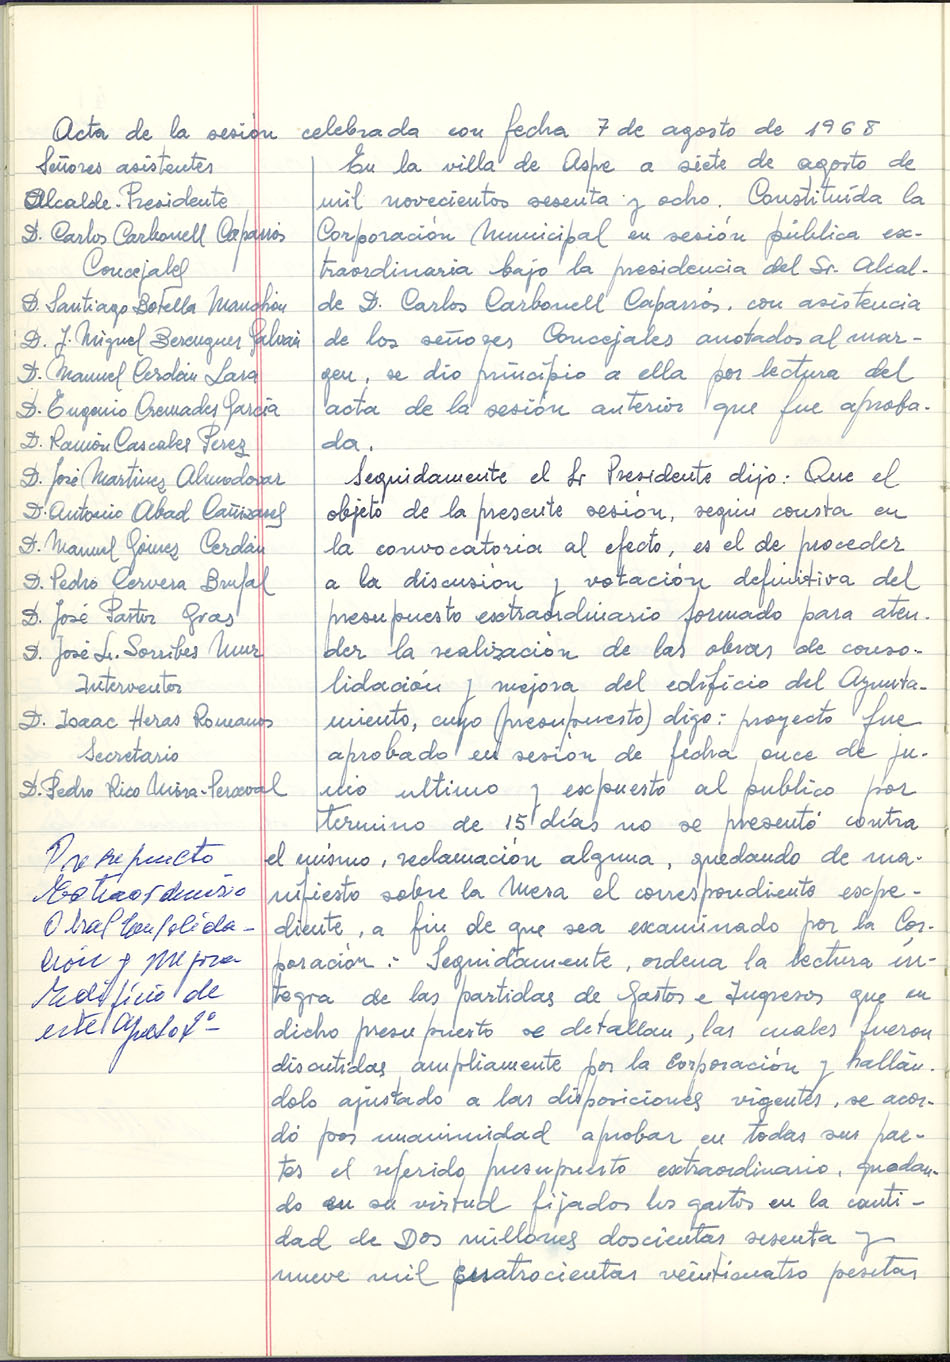 Acta de la sesión celebrada con fecha 7 de agosto de 1968
Señores asistentes
Alcalde-Presidente
D. Carlos Carbonell Caparros
Concejales
D. Santiago Botella Manchón
D. J. Miguel Berenguer Galvan
D. Manuel Cerdán Lara
D. Eugenio Cremades García
D. Ramón Cascales Pérez
D. José Martinez Almodovar
D. Antonio Abad Cañizares
D. Manuel Gómez Cerdán
D. Pedro Cervera Brufal
D. José Pastor Gras
D. José L. Sorribes Mur
Interventor
D. Isaac Heras Romanos
Secretario
D. Pedro Rico Mira-Perceval
Presupuesto
Extraordinario
Obras Consolida-
ción y mejora
Edificio de
este
En la villa de Aspe a siete de agosto de
mil novecientos sesenta y ocho. Constituída la
Corporación Municipal en sesión pública ex-
traordinaria bajo la presidencia del Sr. Alcal-
de D. Carlos Carbonell Caparrós, con asistencia
de los señores Concejales anotados al mar-
gen, se dio principio a ella por lectura del
acta de la sesión anterior que fue aproba-
da.
Seguidamente el Sr Presidente dijo: Que el
objeto de la presente sesión, según consta en
la convocatoria al efecto, es el de proceder
a la discusión y votación definitiva del
presupuesto extraordinario formado para aten-
der la realización de las obras de conso-
lidación y mejora del edificio del Ayunta-
miento, cuyo (presupuesto) digo: proyecto fue
aprobado en sesión de fecha once de ju-
nio ultimo y expuesto al publico por
termino de 15 días no se presentó contra
el mismo, reclamación alguna, quedando de ma-
nifiesto sobre la Mesa el correspondiente expe-
diente, a fin de que sea examinado por la Cor-
poración.- Seguidamente, ordena la lectura ín-
tegra de las partidas de Gastos e Ingresos que en
dicho presupuesto se detallan, las cuales fueron
discutidas ampliamente por la Corporación y hallán-
dolo ajustado a las disposiciones vigentes, se acor-
dó por unanimidad aprobar en todas sus par-
tes el referido presupuesto extraordinario, quedan-
do en su virtud fijados los gastos en la canti-
dad de Dos millones doscientas sesenta y
nueve mil cuatrocientas veinticuatro pesetas